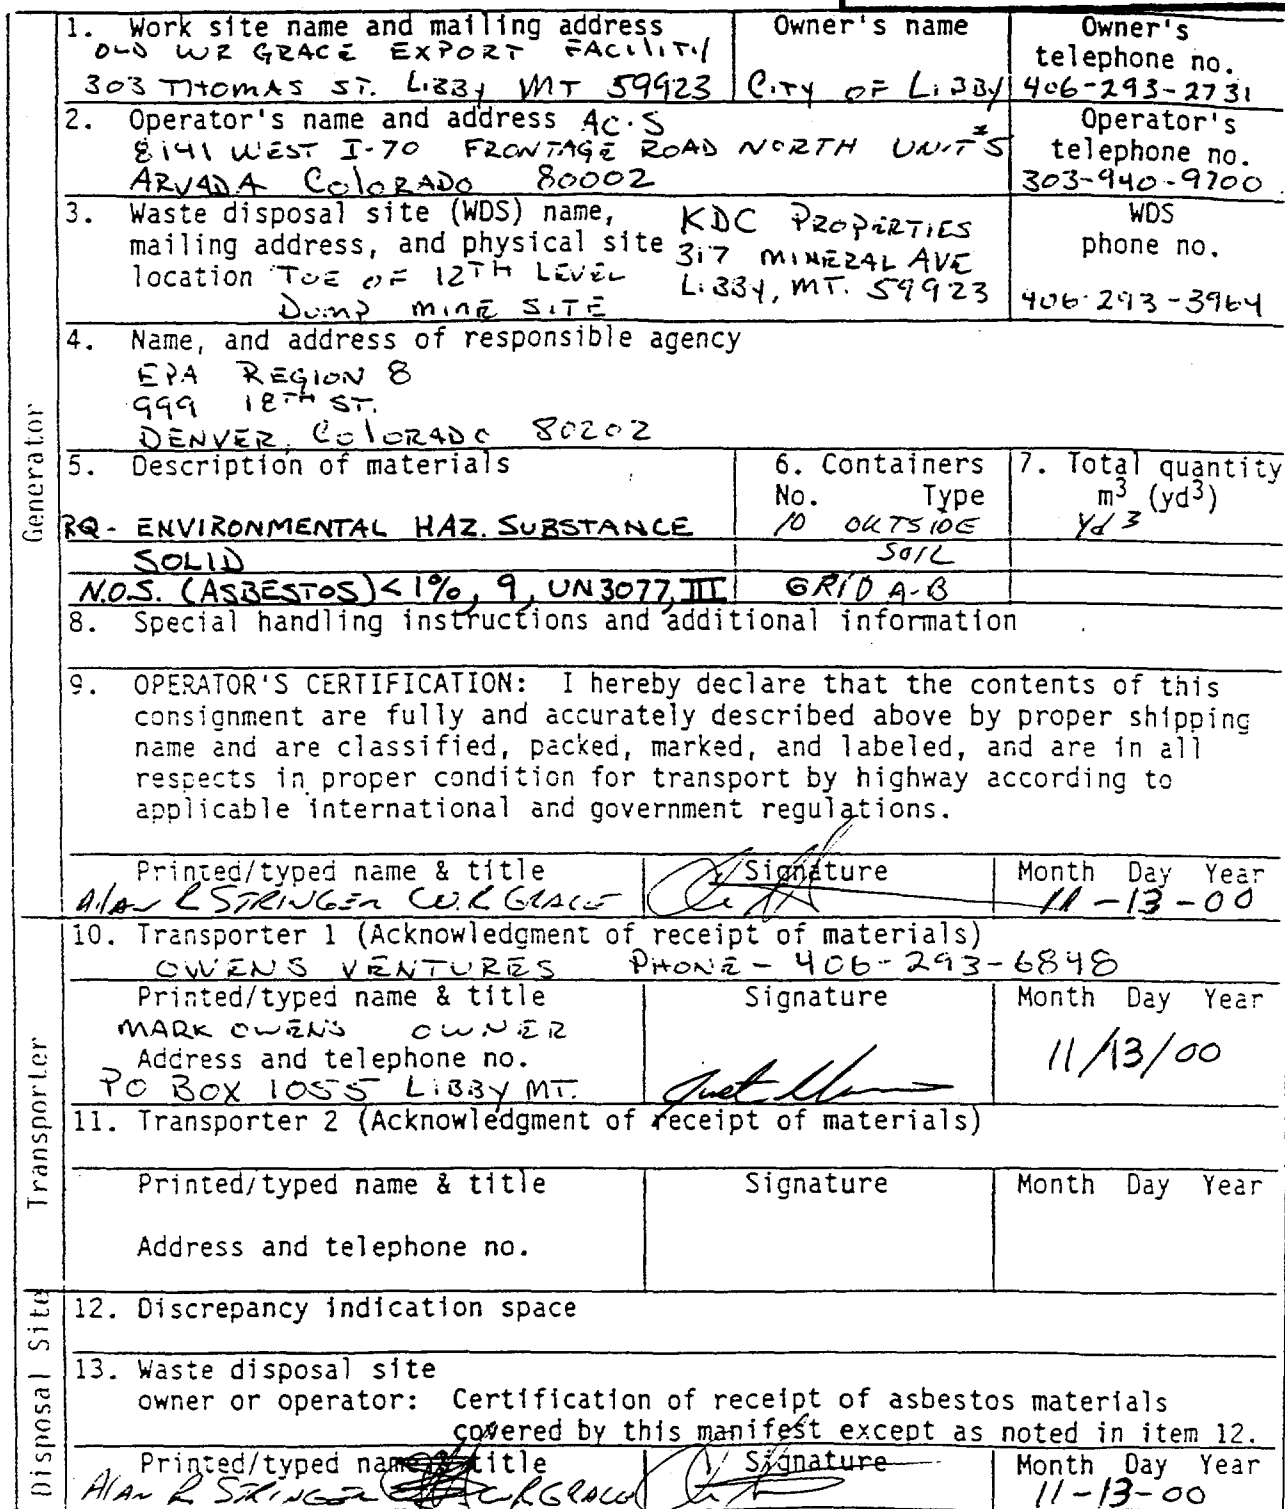 Generator
1. Work site name and mailing address
OLD WR GRACE EXPORT FACILITY
303 THOMAS ST. LIBBY MT 59923
Owner's name
CITY OF LIBBY
Owner's telephone no.
406-293-2731
2. Operator's name and address AC.S
8141 WEST I-70 FRONTAGE ROAD NORTH UNIT #5
ARVADA COLORADO 80002
Operator's telephone no.
303-940-9700
3. Waste disposal site (WDS) name,
mailing address, and physical site
location TOE OF 12TH LEVEL
DUMP MINE SITE
KDC PROPERTIES
317 MINERAL AVE
LIBBY, MT. 59923
WDS
phone no.
406-293-3964
4. Name, and address of responsible agency
EPA REGION 8
999 18TH ST.
DENVER, COLORADO 80202
5. Description of materials
6. Containers
No. Type
7. Total quantity
m3 (yd3)
RQ - ENVIRONMENTAL HAZ. SUBSTANCE
10 OUTSIDE
yd3
SOLID
SOIL
N.O.S. (ASBESTOS) < 1%, 9, UN3077, III
GRID A-B
8. Special handling instructions and additional information
9. OPERATOR'S CERTIFICATION: I hereby declare that the contents of this
consignment are fully and accurately described above by proper shipping
name and are classified, packed, marked, and labeled, and are in all
respects in proper condition for transport by highway according to
applicable international and government regulations.
Printed/typed name & title
Signature
Month Day Year
Alan R STRINGER W.R GRACE
11-13-00
Transporter
10. Transporter 1 (Acknowledgment of receipt of materials)
OWENS VENTURES PHONE - 406-293-6848
Printed/typed name & title
Signature
Month Day Year
MARK OWENS OWNER
Address and telephone no.
11/13/00
PO BOX 1055 LIBBY MT.
11. Transporter 2 (Acknowledgment of receipt of materials)
Printed/typed name & title
Signature
Month Day Year
Address and telephone no.
Disposal Site
12. Discrepancy indication space
13. Waste disposal site
owner or operator: Certification of receipt of asbestos materials
covered by this manifest except as noted in item 12.
Printed/typed name & title
Signature
Month Day Year
Alan R STRINGER W R GRACE
11-13-00